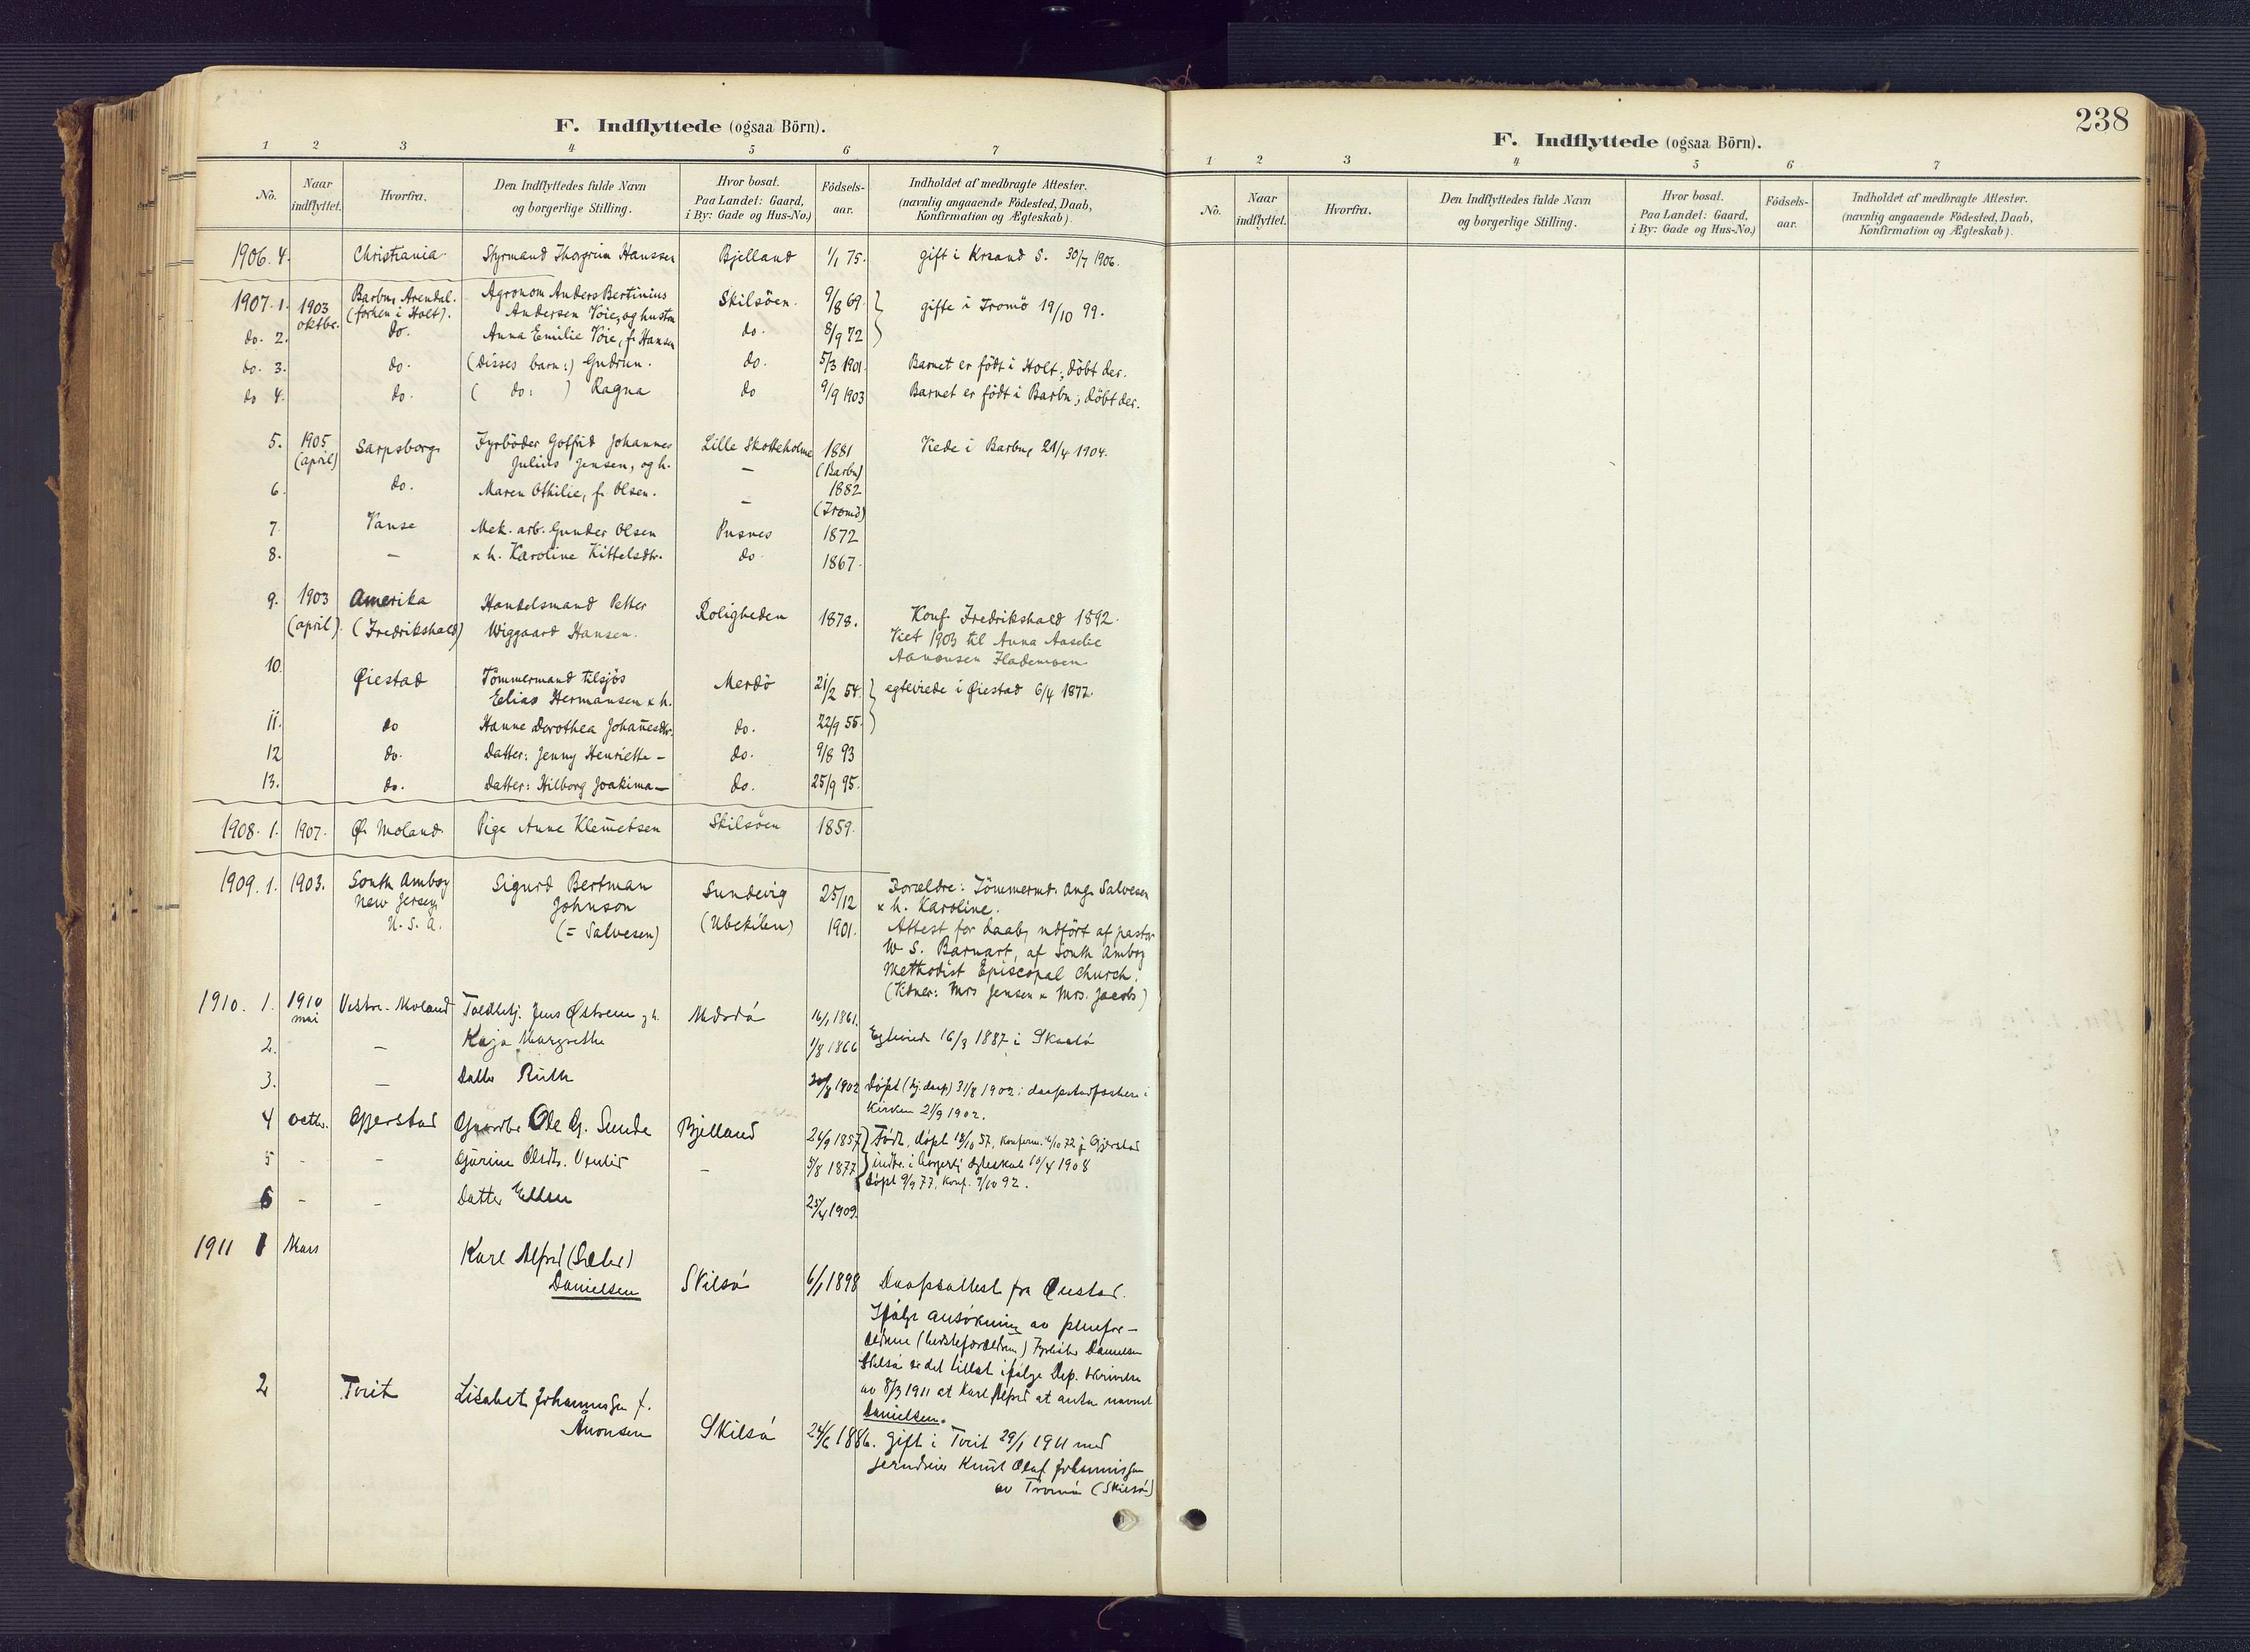 F. Indflyttede (ogsaa Börn).
1 2 3 4 5 6 7
No. Naar indflyttet. Hvorfra. Den Indflyttedes fulde Navn og borgerlige Stilling. Hvor bosat. Paa Landet: Gaard, i By: Gade og Hus-No.) Födsels-aar. Indholdet af medbragte Attester. (navnlig angaaende Födested, Daab, Konfirmation og Ægteskab).
1906. 4. Christiania Styrmand Thorgrim Hanssen Bjelland 1/1 75. gift i Krsand S. 30/7 1906.
1907. 1. 1903 oktbr. Barbu, Arendal. (forhen i Holt). Agronom Anders Bertinius Skilsöen. 9/8 69. gifte i Tromö 19/10 99.
Andersen Voie, og hustru
do. 2. do. Anna Emilie Voie, f. Hansen do. 8/9 72
do. 3. do. (Disses barn:) Gudrun. do. 5/3 1901. Barnet er födt i Holt; döbt der.
do 4. do. ( do: ) Ragna do 9/9 1903 Barnet er födt i Barbu; döbt der.
5. 1905 (april) Sarpsborg Fyrböder Gotfrid Johannes Lille Skotteholme 1881 (Barbu) Viede i Barbu, 21/4 1904.
Julius Jensen, og h. —
6. do. Maren Othilie, f. Olsen. — 1882 (Tromö)
7. Vanse Mek. arb. Gunder Olsen Pusnes 1872
8. — & h. Karoline Kittelsdtr. do. 1867.
9. 1903 (april). Amerika (Fredrikshald) Handelsmand Petter Roligheden 1878. Konf. Fredrikshald 1892.
Wiggaard Hansen. Viet 1903 til Anna Aaselie
Aanonsen Flademoen
10. Øiestad Tömmermand tilsjös Merdö 21/2 54. egteviede i Øiestad 6/4 1877.
Elias Hermansen & h.
11. do Hanne Dorothea Johanesdtr. do. 22/9 55.
12 do. Datter: Jenny Henriette — do. 9/8 93
13. do. Datter: Hilborg Joakima — do. 25/9 95.
1908. 1. 1907. Ø. Moland Pige Anne Klemetsen Skilsöen 1859.
1909. 1. 1903. South Amboy Sigurd Bertman Sundevig 25/12 Forældre: Tömmermd. Aug. Salvesen
New Jersey Johnson & h. Karoline.
U. S. A. (= Salvesen) (Ubekilen) 1901. Attest for daab, udfört af pastor
W. S. Barnart, af South Amboy
Methodist Episcopal Church.
(Vidner: Mrs Jensen & Mrs. Jacobs)
1910. 1. 1910 mai Vestre-Moland Toldbetj. Jens Østrem og h. Merdö 16/1 1861.
2. — Kaja Margrethe 1/8 1866 Egteviede 16/3 1887 i Skaatö
3. — Datter Ruth 30/8 1902 Döpt (hj. daap) 31/8 1902:
Kirken 21/9 1902.
4 octbr. Gjerstad Gaardbr. Ole G. Sunde Bjelland 24/9 1857 Født, döpt 18/10 57, konfirm. 6/10 72 i Gjerstad
5 - - Gurine Olsdtr. - 5/8 1877 indtr. i borgerlig egteskab 10/4 1908
Döpt 9/9 77, konf. 9/10 92.
6 - - Datter Ellen 25/4 1909.
1911 1 Mars Karl Alfred (Sæter)
Danielsen Skilsö 6/1 1898 Daapsattest fra Øiestad.
Ifölge ansökning av pleiefor-
ældrene (bedsteforældrene) Danielsen
Skilsö er det tillat ifölge Dep. skrivelse
av 8/3 1911 at Karl Alfred at anta navnet
Danielsen.
2 Tveit Lisabet Johannessen f.
Aanonsen Skilsö 24/6 1886. Gift i Tveit 29/1 1911 med
jerndreier Knut Olaf Johannisen
av Tromö (Skilsö)
238
F. Indflyttede (ogsaa Börn).
1 2 3 4 5 6 7
No. Naar indflyttet. Hvorfra. Den Indflyttedes fulde Navn og borgerlige Stilling. Hvor bosat. Paa Landet: Gaard, i By: Gade og Hus-No.) Födsels-aar. Indholdet af medbragte Attester. (navnlig angaaende Födested, Daab, Konfirmation og Ægteskab).